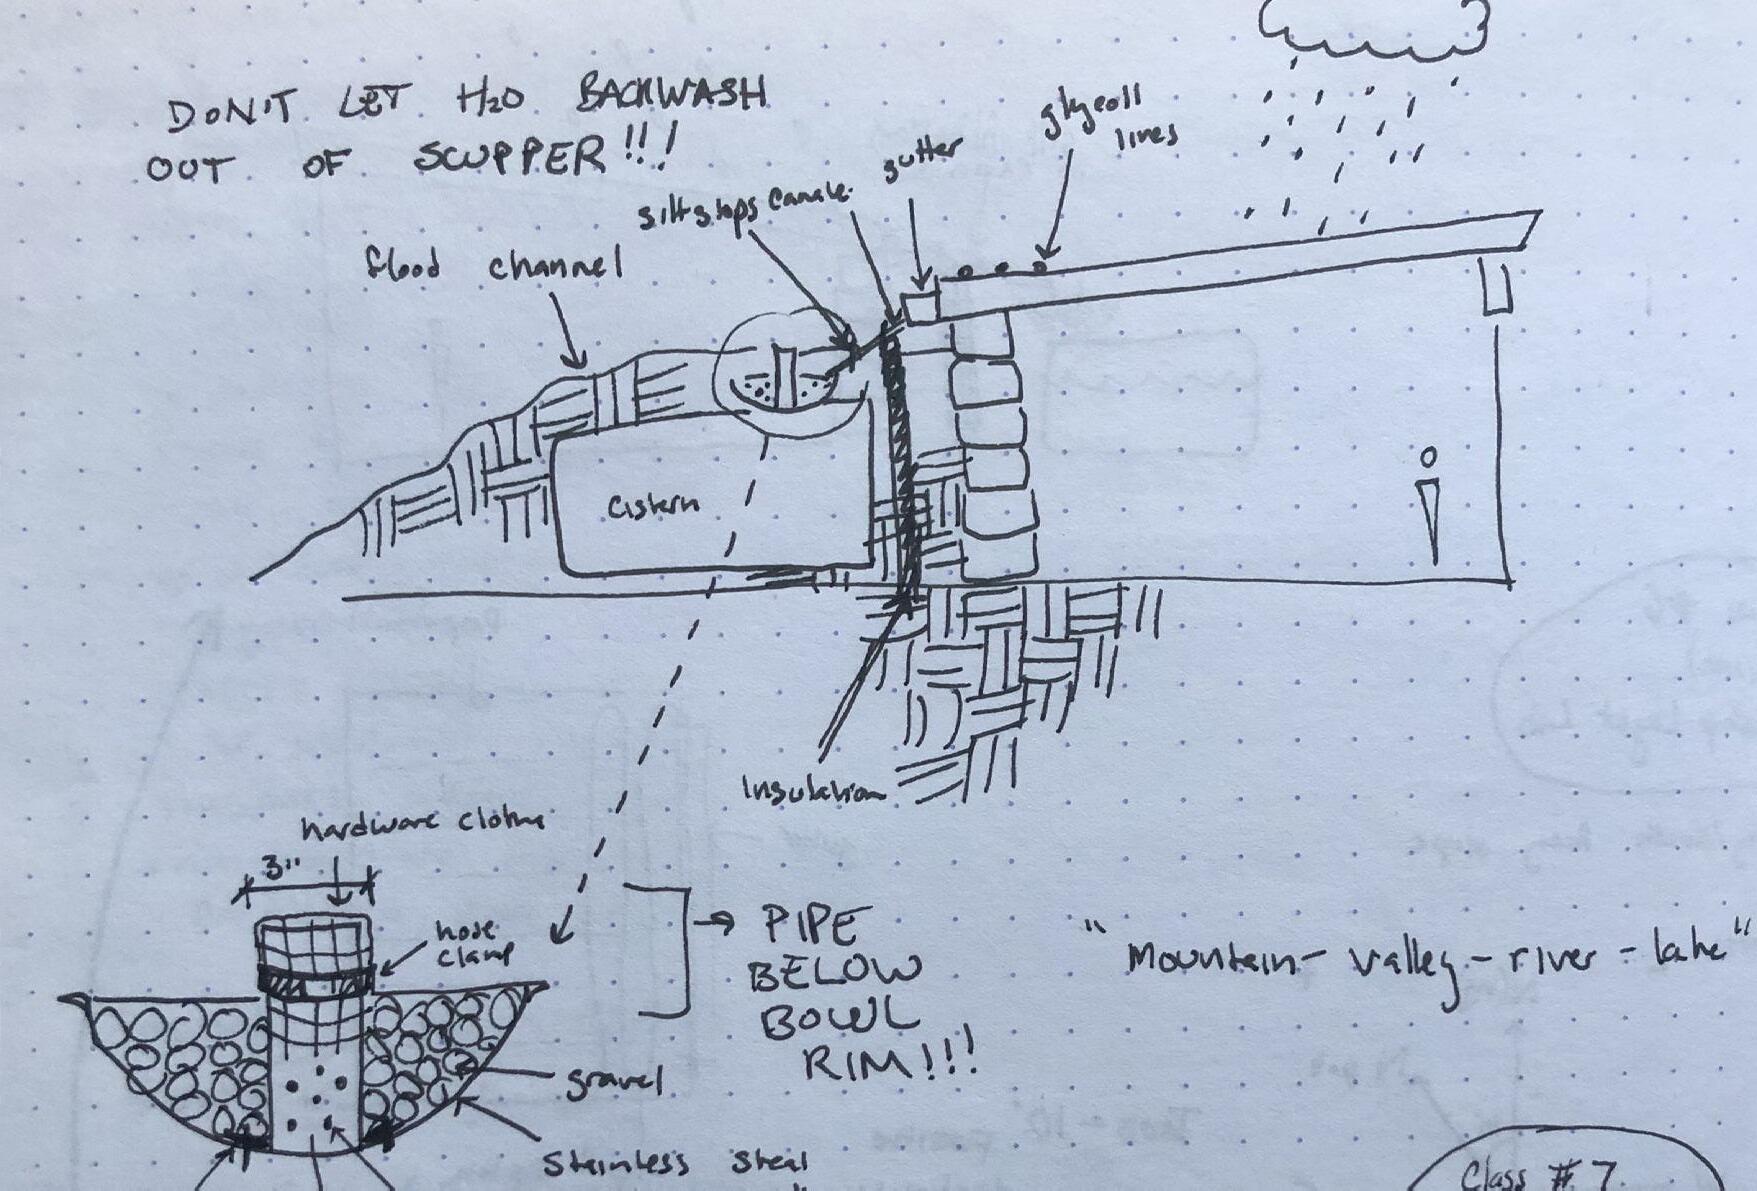 DON'T LET H2O BACKWASH
OUT OF SCUPPER!!!
glycoll
lines
gutter
silt stops canale
flood channel
Cistern
Insulation
hardware cloth
3"
hose
clamp
PIPE
BELOW
BOWL
RIM!!!
"Mountain - valley - river - lake"
gravel
Stainless Steel
Class #7